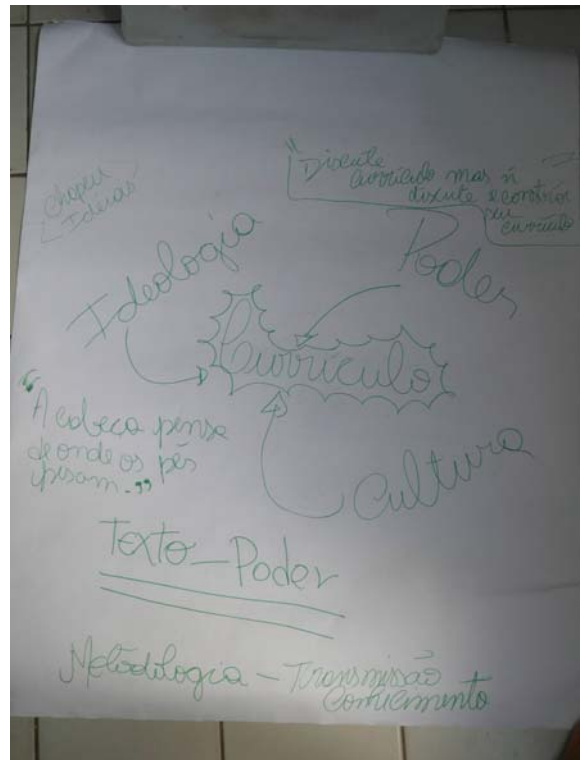 " Discute
currículo mas ñ
discute e constrói
seu
currículo
Chapeu
Ideias
Ideologia
Poder
Currículo
"A cabeça pensa
de onde os pés
pisam."
Cultura
Texto - Poder
Metodologia - Transmissão
Conhecimento